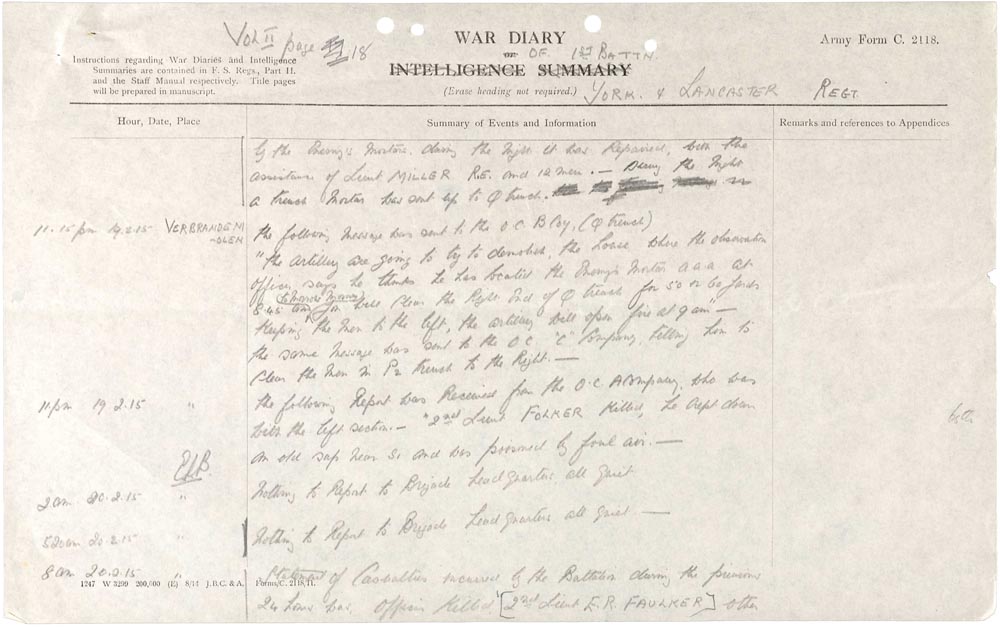 Vol II page 18
WAR DIARY
Army Form C. 2118.
or OF 1st BATTN.
INTELLIGENCE SUMMARY
(Erase heading not required.) YORK. & LANCASTER REGT.
Instructions regarding War Diaries and Intelligence
Summaries are contained in F. S. Regs., Part II.
and the Staff Manual respectively. Title pages
will be prepared in manuscript.
Hour, Date, Place
Summary of Events and Information
Remarks and references to Appendices
by the Enemy's Mortar. during the Night it was Repaired, with the
assistance of Lieut MILLER R.E. and 12 men. — During the Night
a trench Mortar was sent up to Q trench.
11.15 pm 19.2.15 VERBRANDEM
-OLEN
the following Message was sent to the O C B Coy, (Q trench)
"the artillery are going to try to demolish, the house where the observation
officer says he thinks he has located the Enemy's Mortar a a a at
8.45 tomorrow morning you will clear the Right End of Q trench for 50 or 60 yards
Keeping the Men to the left, the artillery will open fire at 9 am" —
the same Message was sent to the O C. "C" Company, telling him to
Clear the Men in P2 trench to the Right. —
11 pm 19 2.15 "
the following Report was Received from the O.C A Company, who was
with the left section. — "2nd Lieut FOLKER Killed, he crept down
an old sap near S1 and was poisoned by foul air. —
2 am 20.2.15 "
Nothing to Report to Brigade Head Quarters all quiet
5 20am 20.2.15 "
Nothing to Report to Brigade Head Quarters all quiet. —
8 am 20.2.15 "
Statement of Casualties incurred by the Battalion during the previous
24 hours was. Officers Killed [2nd Lieut E.R. FAULKER] other
1247 W 3299 200,000 (E) 8/14 J.B.C. & A. Forms/C. 2118/11.